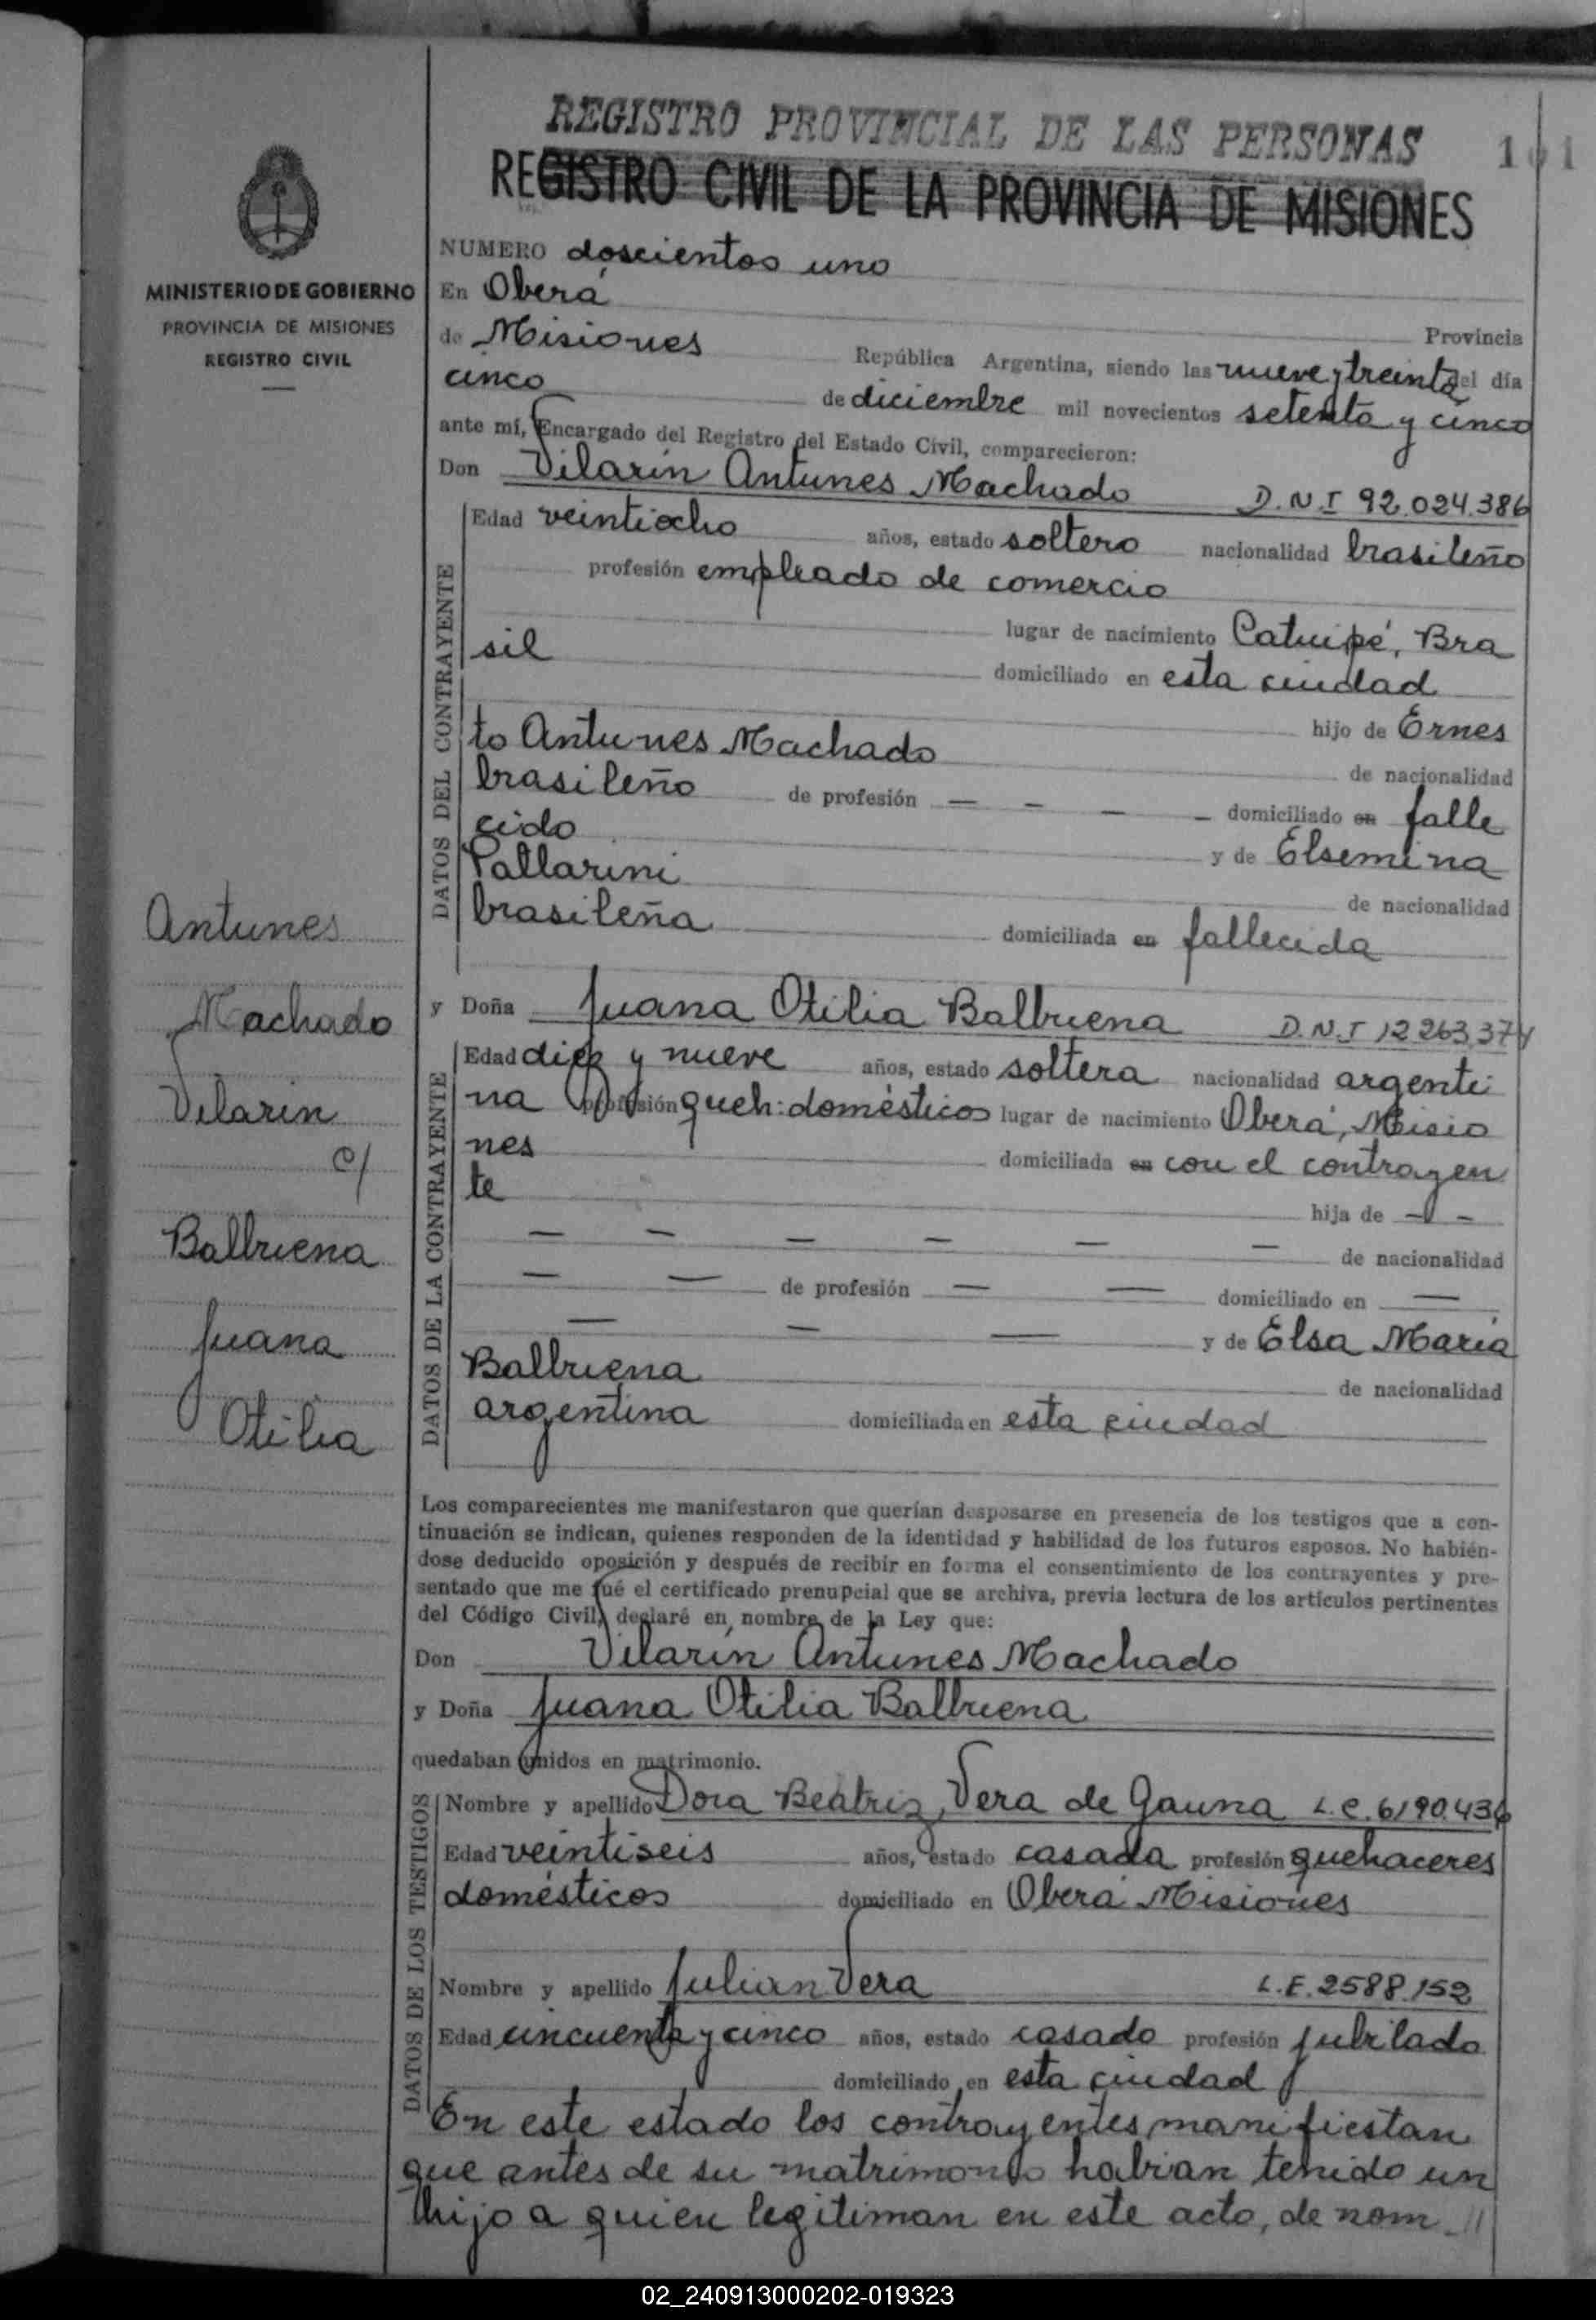 REGISTRO PROVINCIAL DE LAS PERSONAS
REGISTRO CIVIL DE LA PROVINCIA DE MISIONES
MINISTERIO DE GOBIERNO
PROVINCIA DE MISIONES
REGISTRO CIVIL
NUMERO doscientos uno
En Oberá
Provincia
de Misiones República Argentina, siendo las nueve y treinta del día
cinco de diciembre mil novecientos setenta y cinco
ante mí, Encargado del Registro del Estado Civil, comparecieron:
Don Vilarín Antunes Machado D.N.I 92.024.386
DATOS DEL CONTRAYENTE
Edad veintiocho años, estado soltero nacionalidad brasileño
profesión empleado de comercio
lugar de nacimiento Catuipé, Bra
sil domiciliado en esta ciudad
hijo de Ernes
to Antunes Machado de nacionalidad
brasileño de profesión — — — — domiciliado en falle
cido y de Elsemina
Pallarini de nacionalidad
brasileña domiciliada en fallecida
Antunes
Machado
Vilarin
c/
Balbuena
Juana
Otilia
y Doña Juana Otilia Balbuena D.N.I 12 263.374
DATOS DE LA CONTRAYENTE
Edad diez y nueve años, estado soltera nacionalidad argenti
na profesión queh: domésticos lugar de nacimiento Oberá, Misio
nes domiciliada en con el contrayen
te hija de — —
— — — — — — de nacionalidad
— — de profesión — — domiciliado en —
— — — y de Elsa María
Balbuena de nacionalidad
argentina domiciliada en esta ciudad
Los comparecientes me manifestaron que querían desposarse en presencia de los testigos que a con-
tinuación se indican, quienes responden de la identidad y habilidad de los futuros esposos. No habién-
dose deducido oposición y después de recibir en forma el consentimiento de los contrayentes y pre-
sentado que me fué el certificado prenupcial que se archiva, previa lectura de los artículos pertinentes
del Código Civil, declaré en nombre de la Ley que:
Don Vilarín Antunes Machado
y Doña Juana Otilia Balbuena
quedaban unidos en matrimonio.
DATOS DE LOS TESTIGOS
Nombre y apellido Dora Beatriz Vera de Gauna L.C. 6190.436
Edad veintiseis años, estado casada profesión quehaceres
domésticos domiciliado en Oberá Misiones
Nombre y apellido Julian Vera L.E. 2588.152
Edad cincuenta y cinco años, estado casado profesión jubilado
domiciliado en esta ciudad
En este estado los contrayentes manifiestan
que antes de su matrimonio habían tenido un
hijo a quien legitiman en este acto, de nom //
02_240913000202-019323